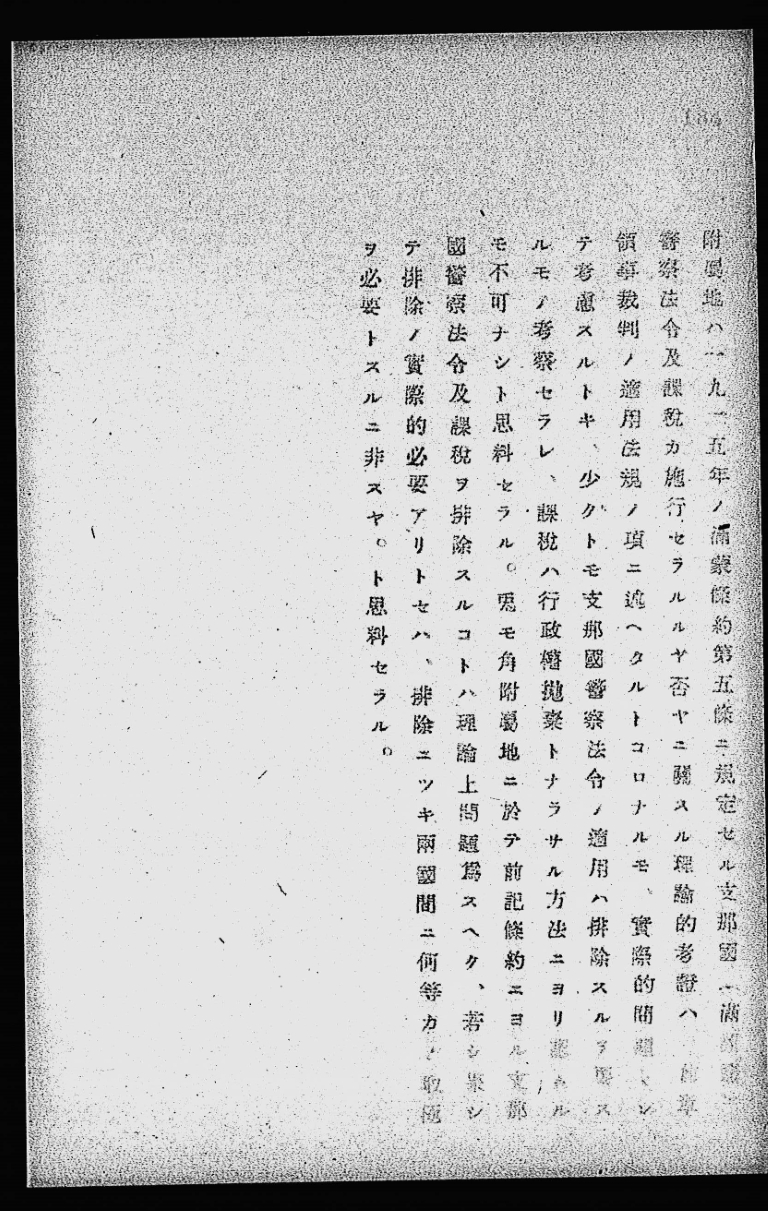 附屬地ハ一九一五年ノ滿蒙條約第五條ニ規定セル支那國ノ
警察法令及課稅カ施行セラルルヤ否ヤニ關スル理論的考證ハ 前章
領事裁判ノ適用法規ノ項ニ述ヘタルトコロナルモ、實際的問題トシ
テ考慮スルトキ、少クトモ支那國警察法令ノ適用ハ排除スルヲ要ス
ルモノ考察セラレ、課稅ハ行政權拋棄トナラサル方法ニヨリ ル
モ不可ナシト思料セラル。兎モ角附屬地ニ於テ前記條約ニヨル支那
國警察法令及課稅ヲ排除スルコトハ理論上問題爲スヘク、若シ果シ
テ排除ノ實際的必要アリトセハ、排除ニツキ兩國間ニ何等カノ取極
ヲ必要トスルニ非スヤ。ト思料セラル。